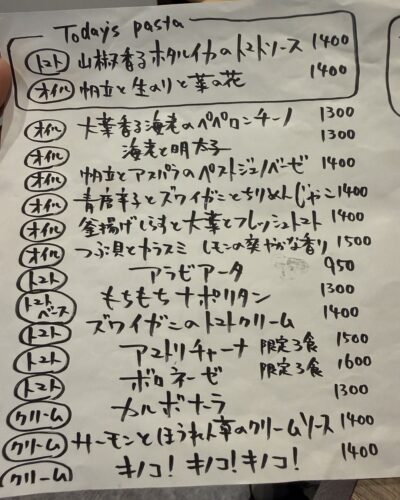 Today's pasta
トマト 山椒香るホタルイカのトマトソース 1400
オイル 帆立と生のりと菜の花 1400
オイル 大葉香る海老のペペロンチーノ 1300
オイル 海老と明太子 1300
オイル 帆立とアスパラのペストジェノベーゼ 1400
オイル 青唐辛子とズワイガニとちりめんじゃこ 1400
オイル 釜揚げしらすと大葉とフレッシュトマト 1400
オイル つぶ貝とカラスミ レモンの爽やかな香り 1500
トマト アラビアータ 950
トマトベース もちもちナポリタン 1300
トマト ズワイガニのトマトクリーム 1400
トマト アマトリチャーナ 限定3食 1500
トマト ボロネーゼ 限定3食 1600
クリーム カルボナーラ 1300
クリーム サーモンとほうれん草のクリームソース 1400
クリーム キノコ!キノコ!キノコ! 1400